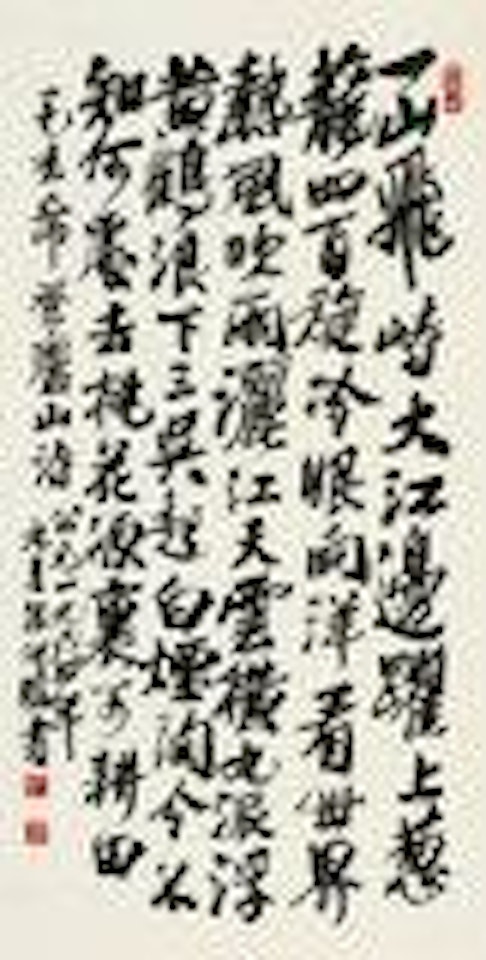 一山飛峙大江邊躍上葱
蘢四百旋冷眼向洋看世界
熱風吹雨灑江天雲橫九派浮
黃鶴浪下三吳起白煙陶令不
知何處去桃花源裏可耕田
毛主席登廬山詩